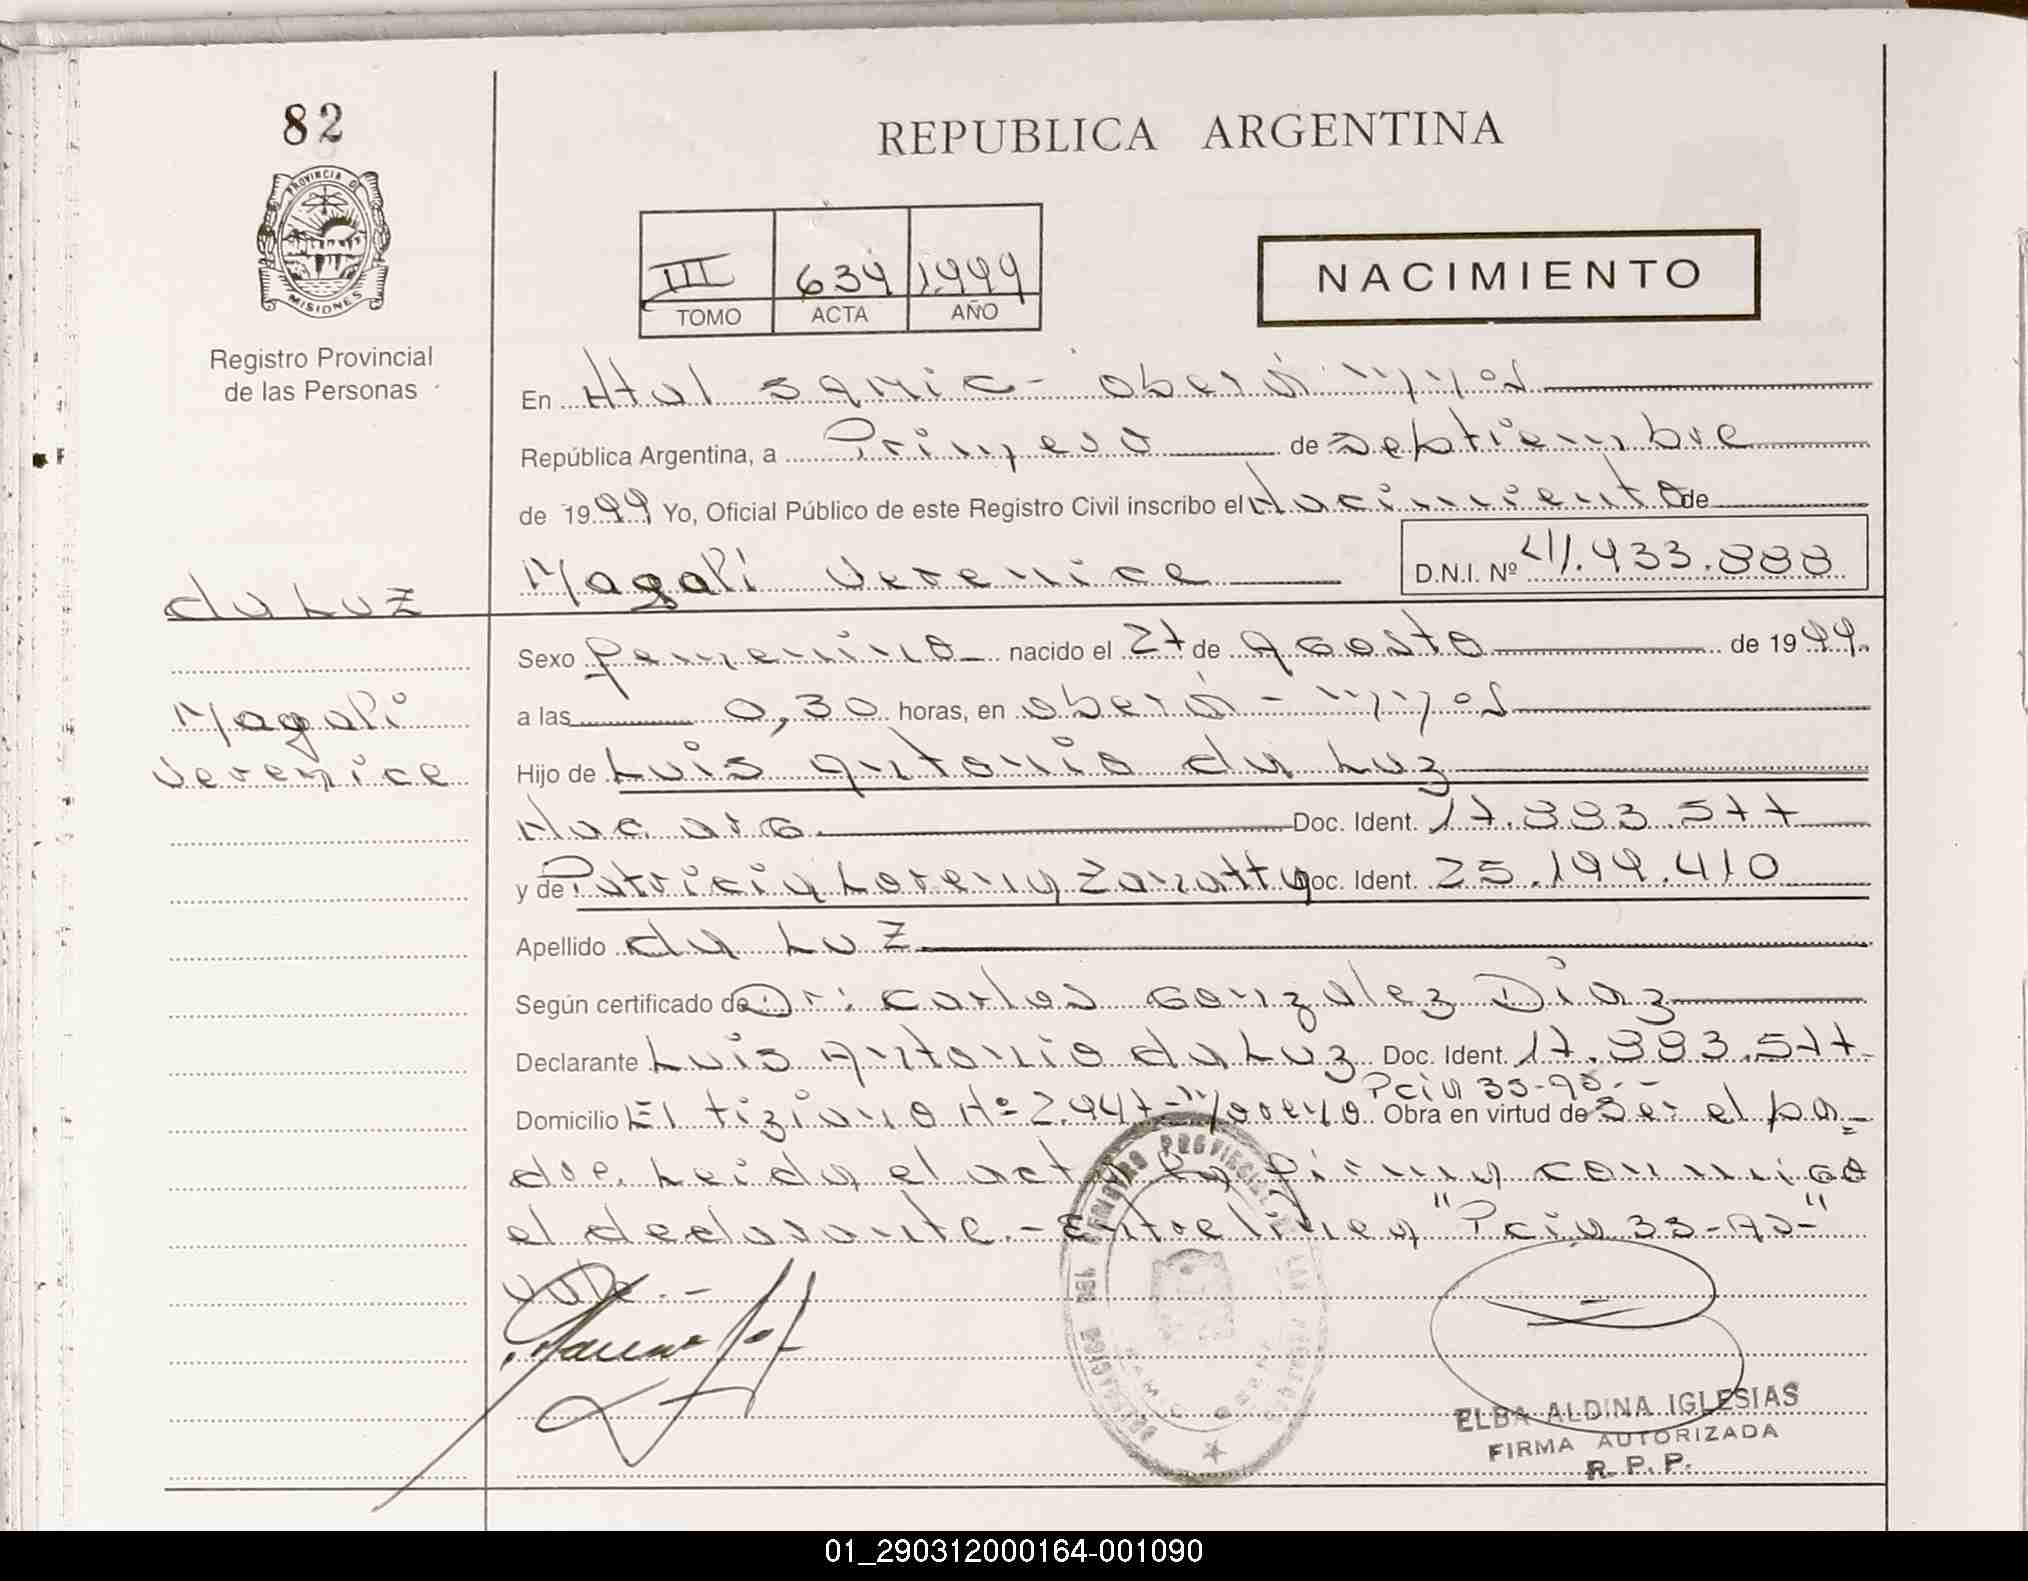 82
REPUBLICA ARGENTINA
PROVINCIA DE
MISIONES
Registro Provincial
de las Personas
III 634 1.999
TOMO ACTA AÑO
NACIMIENTO
En Htal samic - oberá
República Argentina, a Primero de septiembre
de 1999 Yo, Oficial Público de este Registro Civil inscribo el Nacimiento de
Magali Verenice D.N.I. Nº 41.933.888
da Luz
Sexo femenino nacido el 27 de Agosto de 1999.
Magali
a las 0,30 horas, en oberá -
Verenice
Hijo de Luis Antonio da Luz
Doc. Ident. 17.883.577
y de Patricia Lorena Zanatta Doc. Ident. 25.199.410
Apellido da Luz
Según certificado de Dr: Carlos Gonzalez Diaz
Declarante Luis Antonio da Luz Doc. Ident. 17.883.577-
Pcia
Domicilio El tiziano Nº 2.947- Moreno Obra en virtud de Ser el pa-
dre. Leida el acta la firma conmigo
el declarante. - Entrelinea "Pcia
vale. -
ELBA ALDINA IGLESIAS
FIRMA AUTORIZADA
R. P. P.
01_290312000164-001090